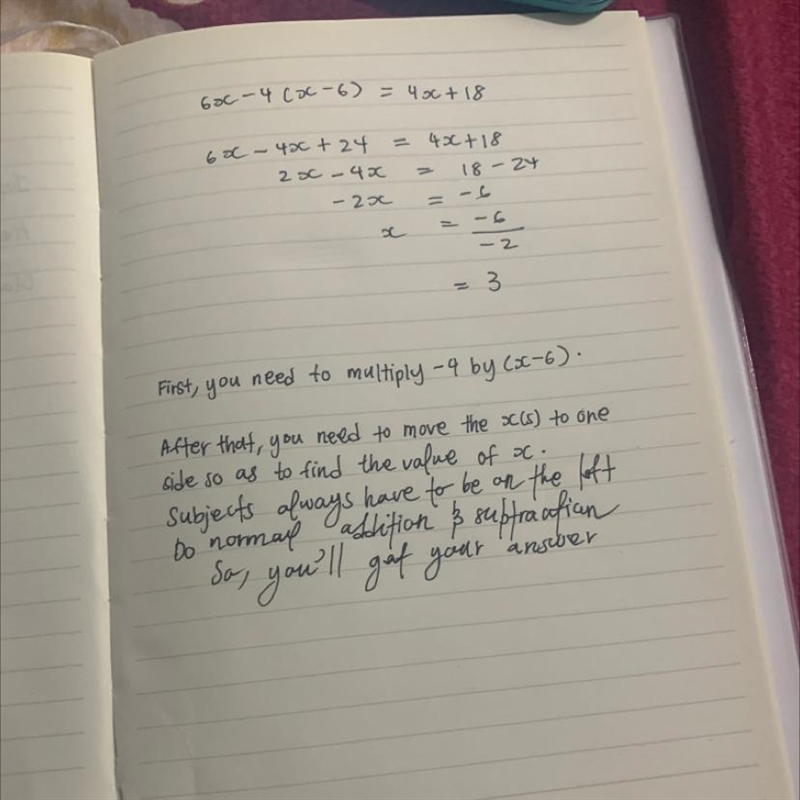 6x - 4 (x - 6) = 4x + 18
6x - 4x + 24 = 4x + 18
2x - 4x = 18 - 24
- 2x = - 6
x = -6/-2
= 3
First, you need to multiply -4 by (x-6).
After that, you need to move the x(s) to one
side so as to find the value of x.
Subjects always have to be on the left
Do normal addition & subtraction
So, you'll get your answer